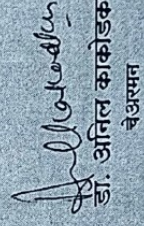 डॉ. अनिल काकोडक
चेअरमन